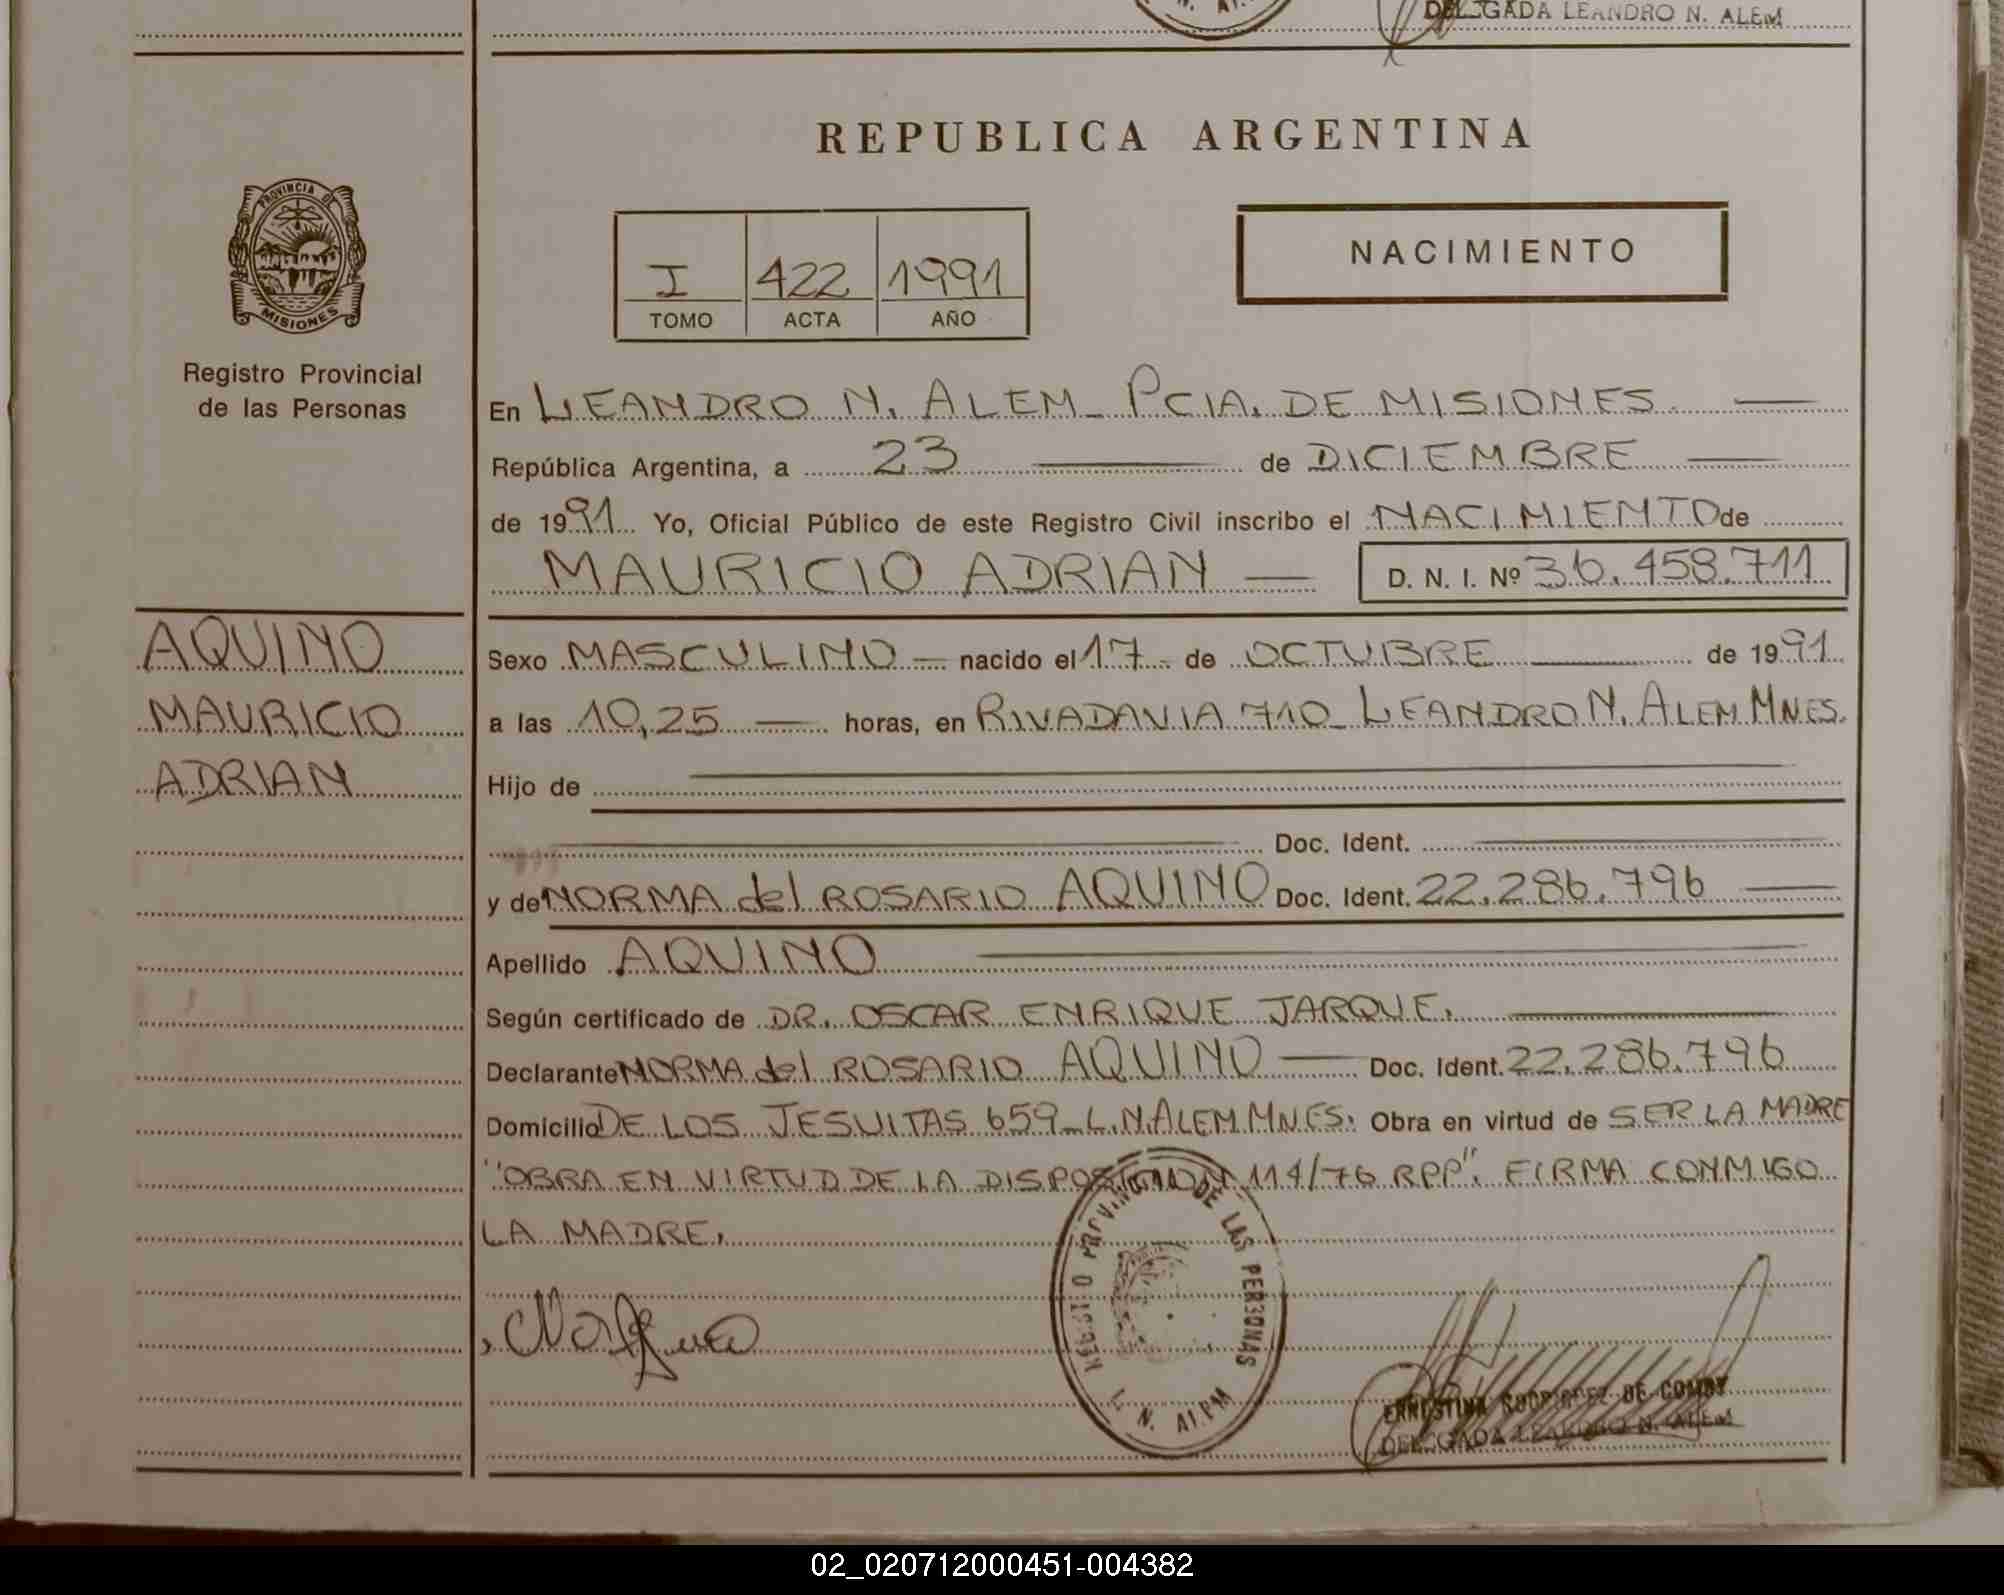 DELEGADA LEANDRO N. ALEM
REPUBLICA ARGENTINA
PROVINCIA DE
MISIONES
Registro Provincial
de las Personas
I 422 1991
TOMO ACTA AÑO
NACIMIENTO
En LEANDRO N. ALEM - PCIA. DE MISIONES
República Argentina, a 23 de DICIEMBRE
de 1991 Yo, Oficial Público de este Registro Civil inscribo el NACIMIENTO de
MAURICIO ADRIAN D. N. I. Nº 36.458.711
AQUINO
MAURICIO
ADRIAN
Sexo MASCULINO nacido el 17 de OCTUBRE de 1991
a las 10,25 horas, en RIVADAVIA 710 - LEANDRO N. ALEM MNES.
Hijo de
Doc. Ident.
y de NORMA del ROSARIO AQUINO Doc. Ident. 22.286.796
Apellido AQUINO
Según certificado de DR. OSCAR ENRIQUE JARQUE.
Declarante NORMA del ROSARIO AQUINO Doc. Ident. 22.286.796
Domicilio DE LOS JESUITAS 659 - L.N. ALEM MNES. Obra en virtud de SER LA MADRE
"OBRA EN VIRTUD DE LA DISPOSICION 114/76 RPP". FIRMA CONMIGO
LA MADRE.
REGISTRO PROVINCIAL DE LAS PERSONAS
L. N. ALEM
ERNESTINA RODRIGUEZ DE
DELEGADA LEANDRO N. ALEM
02_020712000451-004382